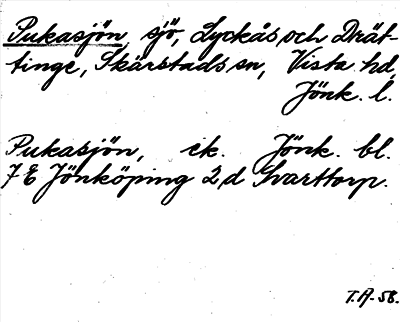 Pukasjön, sjö, Lyckås och Drät-
tinge, Skärstads sn, Vista hd,
Jönk. l.
Pukasjön, ek. Jönk. bl.
7 E Jönköping 2 d Svarttorp.
T.A. -58.